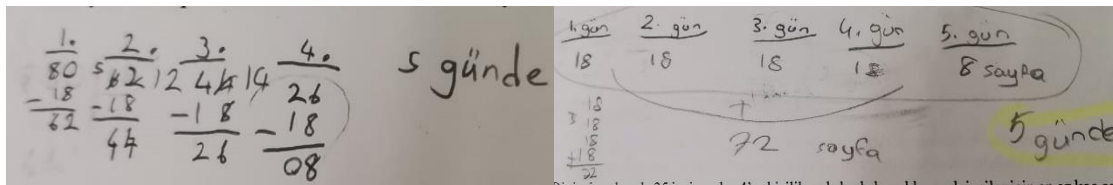 1. 2. 3. 4.
80 62 12 44 14 26
-18 -18 -18 -18
62 44 26 08
5 günde
1. gün 2. gün 3. gün 4. gün 5. gün
18 18 18 18 8 sayfa
18
18
18
+18
+
72 sayfa
5 günde